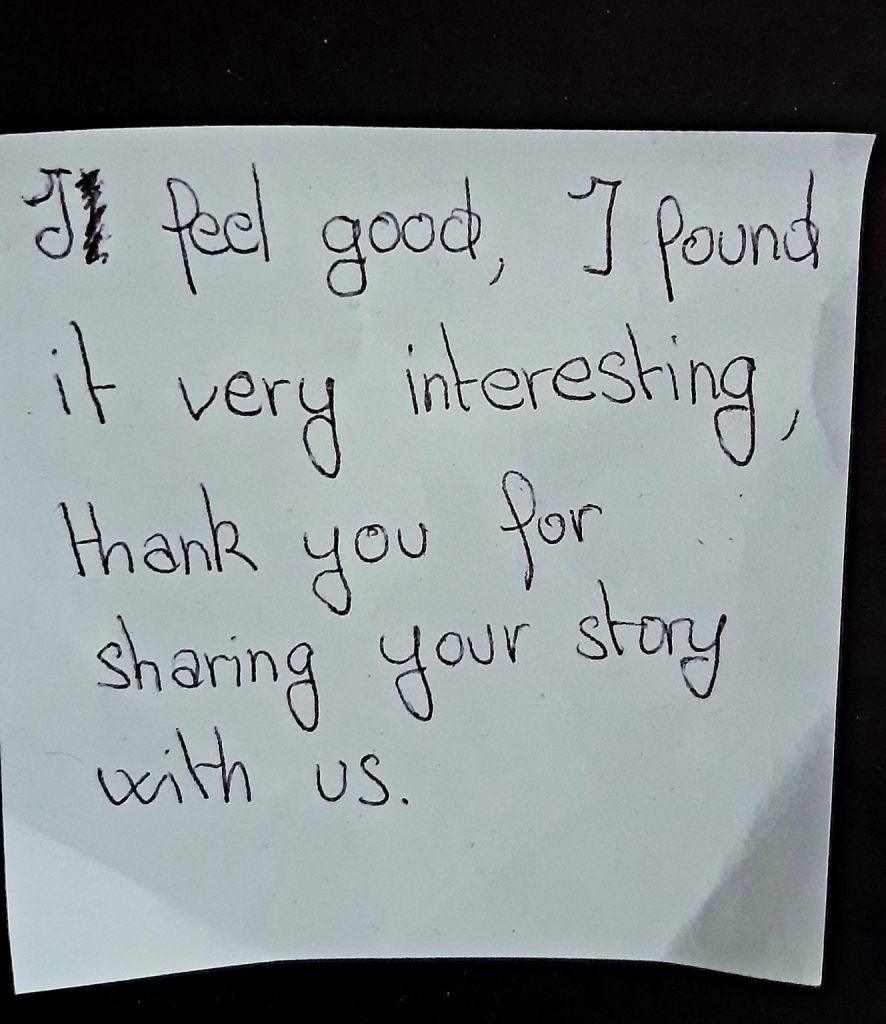 I feel good, I found
it very interesting,
thank you for
sharing your story
with us.